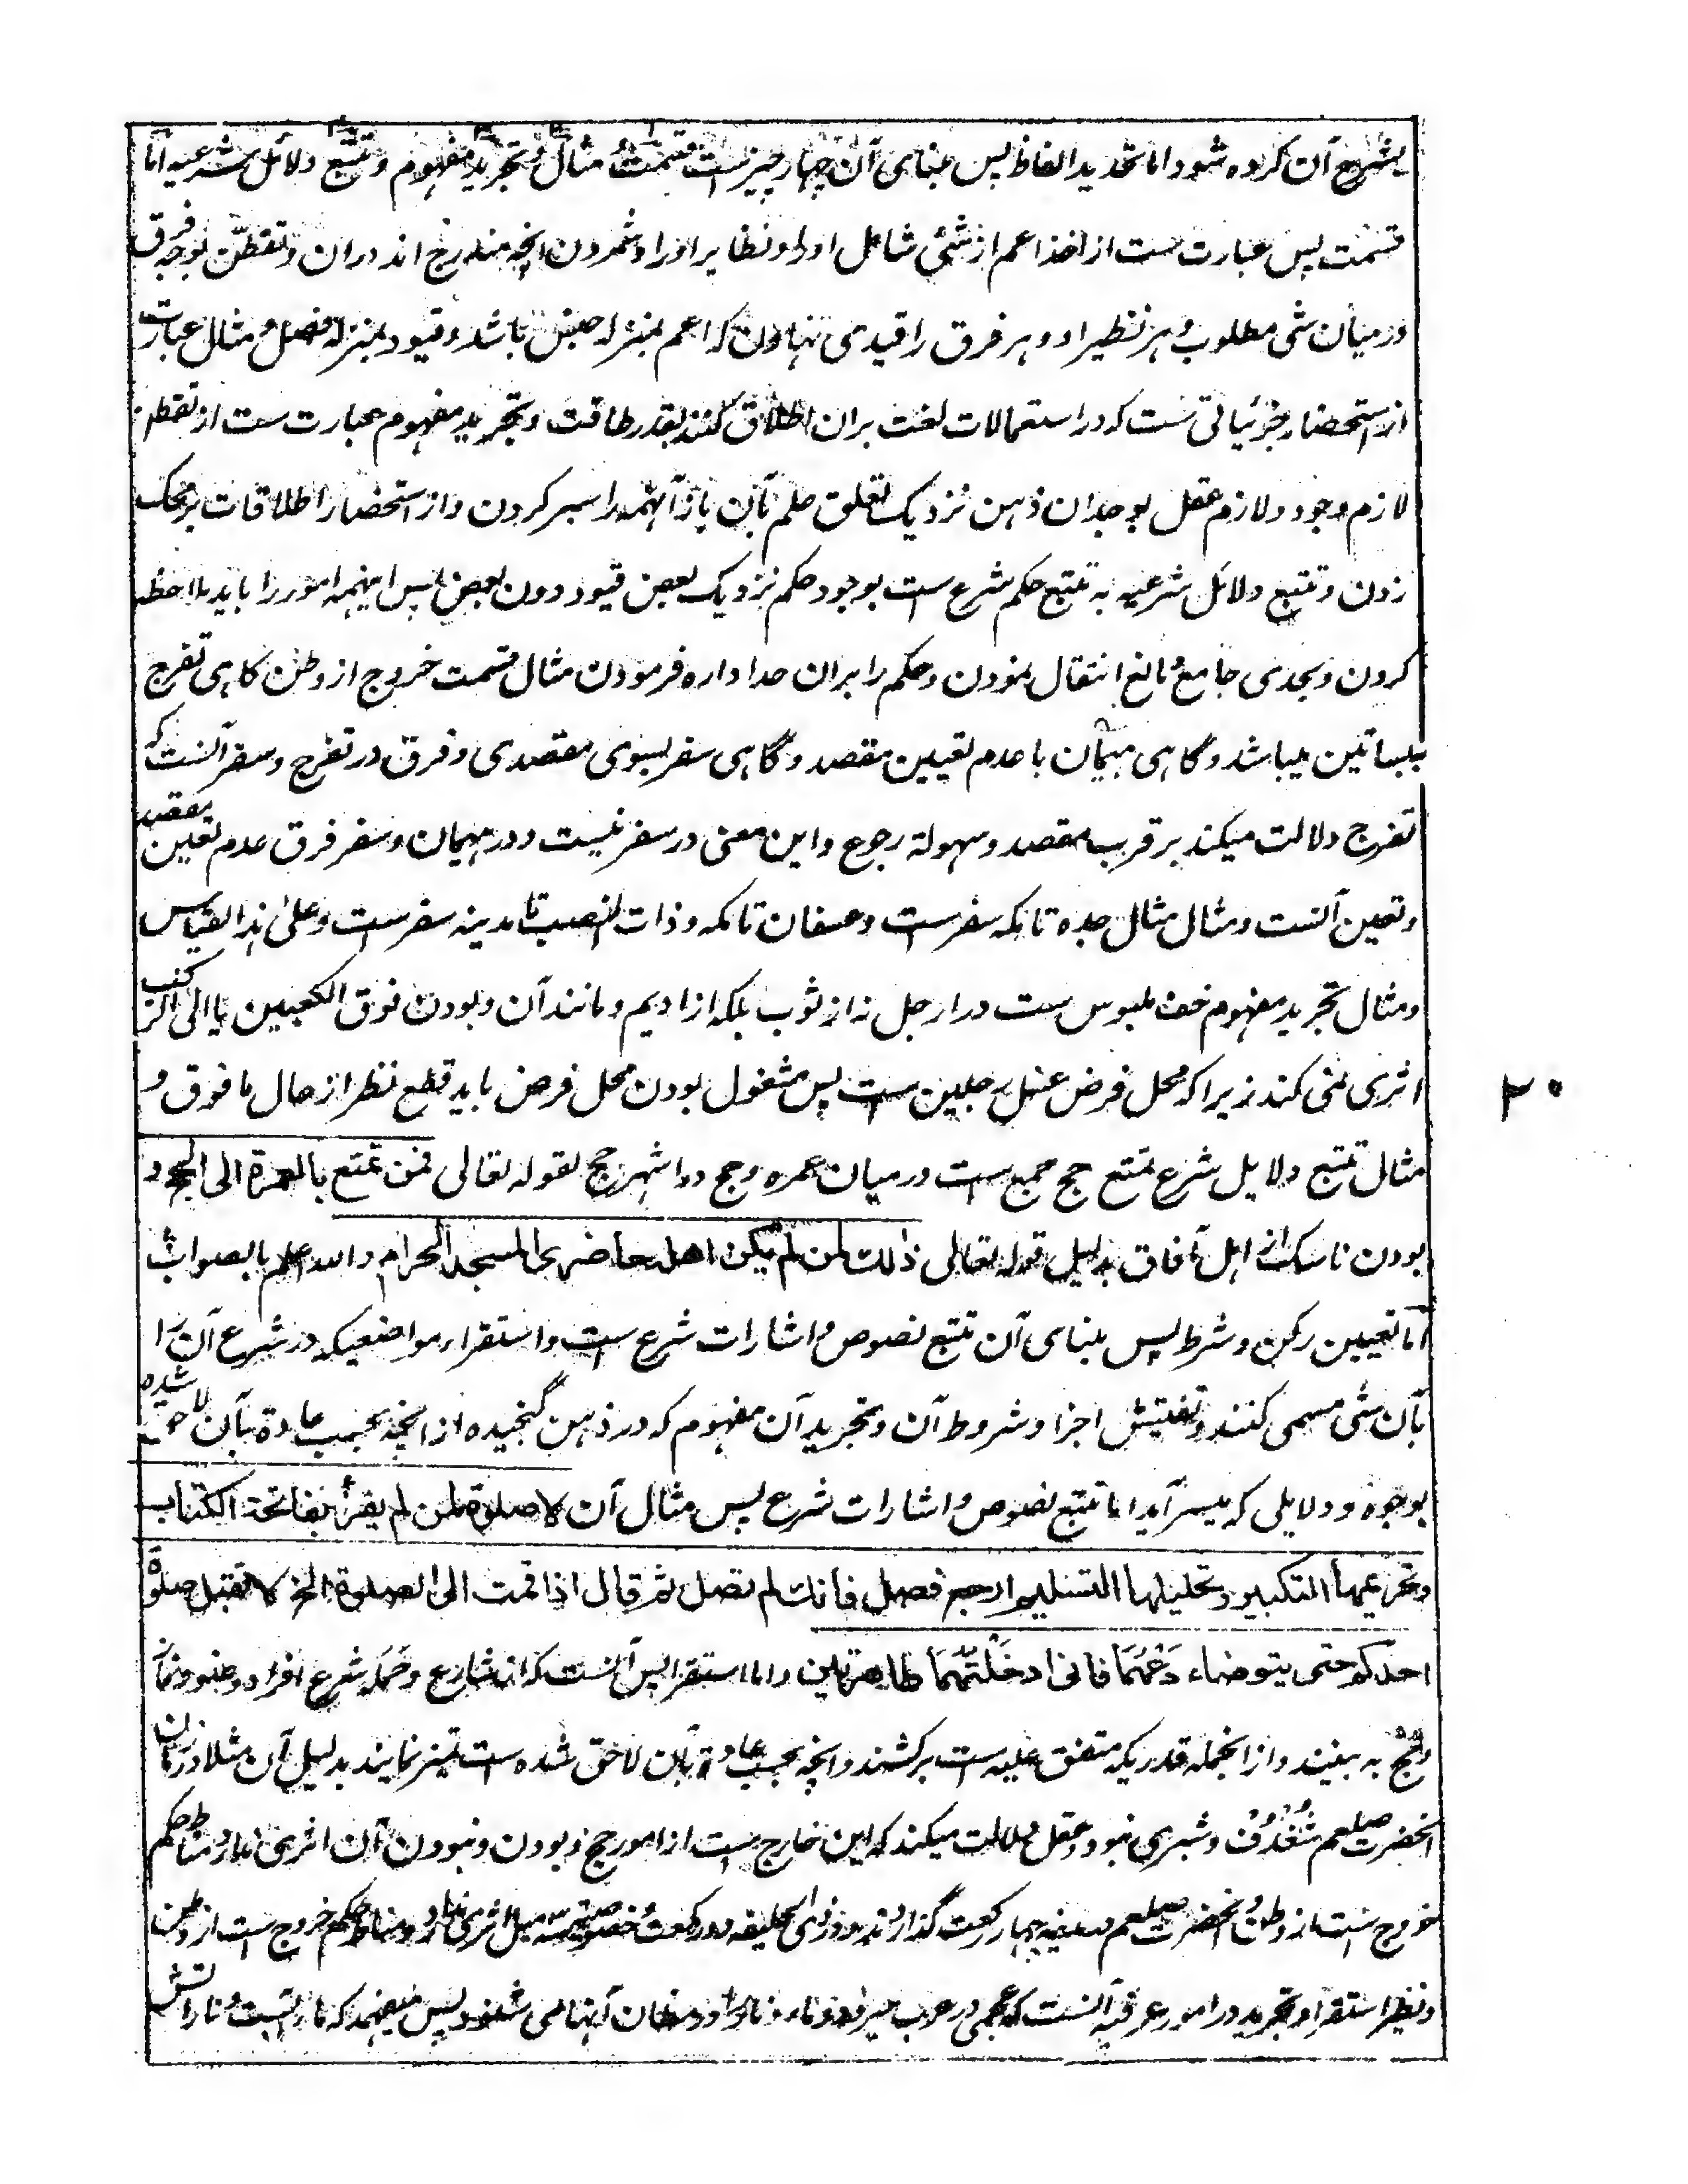 بشرع آن کرده شود اما تحدید الفاظ پس بنای آن چهار چیزست قسمت و مثال و تجرید مفهوم و تتبع دلائل شرعیه اما
قسمت پس عبارت ست از اخذ اعم از شئی شامل او را و نظایر او را و شمردن انچه مندرج اند در ان و تفطن بوجه فرق
درمیان شی مطلوب و هر نظیر او و هر فرق را قیدی نهادن که اعم بمنزله جنس باشد و قیود بمنزله فصل و مثال عبارت
از استحضار جزئیاتی ست که در استعمالات لغت بران اطلاق کنند بقدر طاقت و تجرید مفهوم عبارت ست از تفطن
لازم وجود و لازم عقل بوجدان ذهن نزدیک تعلق علم بآن باز آنهمه را سبر کردن و از استحضار اطلاقات بر محک
زدن و تتبع دلائل شرعیه به تتبع حکم شرع ست بوجود حکم نزدیک بعض قیود دون بعض پس اینهمه امور را باید ملاحظه
کردن و بحدی جامع و مانع انتقال نمودن و حکم را بران حد اداره فرمودن مثال قسمت خروج از وطن کاهی تفرج
ببساتین میباشد و گاهی هیمان با عدم تعیین مقصد و گاهی سفر بسوی مقصدی و فرق در تفرج و سفر آنست که
تفرج دلالت میکند بر قرب مقصد و سهولة رجوع و این معنی در سفر نیست و در هیمان و سفر فرق عدم تعین مقصد
و تعین آنست و مثال مثال جده تا مکه سفرست و عسفان تا مکه و ذات النصب تا مدینه سفرست و علی هذا القیاس
و مثال تجرید مفهوم خف ملبوس ست در ارجل نه از ثوب بلکه از ادیم و مانند آن و بودن فوق الکعبین یا الی الرکب
اثری نمی کند زیرا که محل فرض غسل رجلین ست پس مشغول بودن محل فرض باید قطع نظر از حال ما فوق و
مثال تتبع دلایل شرع تمتع حج جمع ست درمیان عمره و حج در اشهر حج لقوله تعالی فمن تمتع بالعمرة الی الحج و
بودن ناسک از اهل آفاق بدلیل قوله تعالی ذالک لمن لم یکن اهله حاضری المسجد الحرام والله اعلم بالصواب
اما تعیین رکن و شرط پس بنای آن تتبع نصوص و اشارات شرع ست و استقراء مواضعیکه در شرع آن را
بآن شی مسمی کنند و تفتیش اجزا و شروط آن و تجرید آن مفهوم که در ذهن گنجیده از انچه بحسب عادة بآن لاحق شده
بوجوه و دلایلی که میسر آید اما تتبع نصوص و اشارات شرع پس مثال آن لا صلوة لمن لم یقرأ بفاتحة الکتاب
و تحریمها التکبیر و تحلیلها التسلیم ارجع فصل فانک لم تصل ثم قال اذا قمت الی الصلوة الخ لا تقبل صلوة
احدکم حتی یتوضاء دَعْهُمَا فانی ادخَلْتُهُمَا طاهرتین و اما استقرا پس آنست که از شارع و حَمَله شرع افراد وضو و نماز
و حج به بینند و از انجمله قدریکه متفق علیه ست برکشند و انچه بحسب عادة بآن لاحق شده ست تمیز نمایند بدلیل آن مثلا در زمان
انحضرت صلعم شُغْدُف و شبری نبود و عقل دلالت میکند که این خارج ست از امور حج و بودن و نبودن آن اثری ندارد و مناط حکم
خروج ست از وطن و انحضرت صلعم بمدینه چهار رکعت گذاردند و در ذی الحلیفه دو رکعت و خصوصیت سه میل اثری ندارد و مناط حکم خروج ست از وطن
و نظیر استقرا و تجرید در امور عرفیه آنست که عجمی در عرب میرود و ماء و نار را در سخنان آنها می شنود پس میفهمد که ماء آبست و نار آتش
۲۰